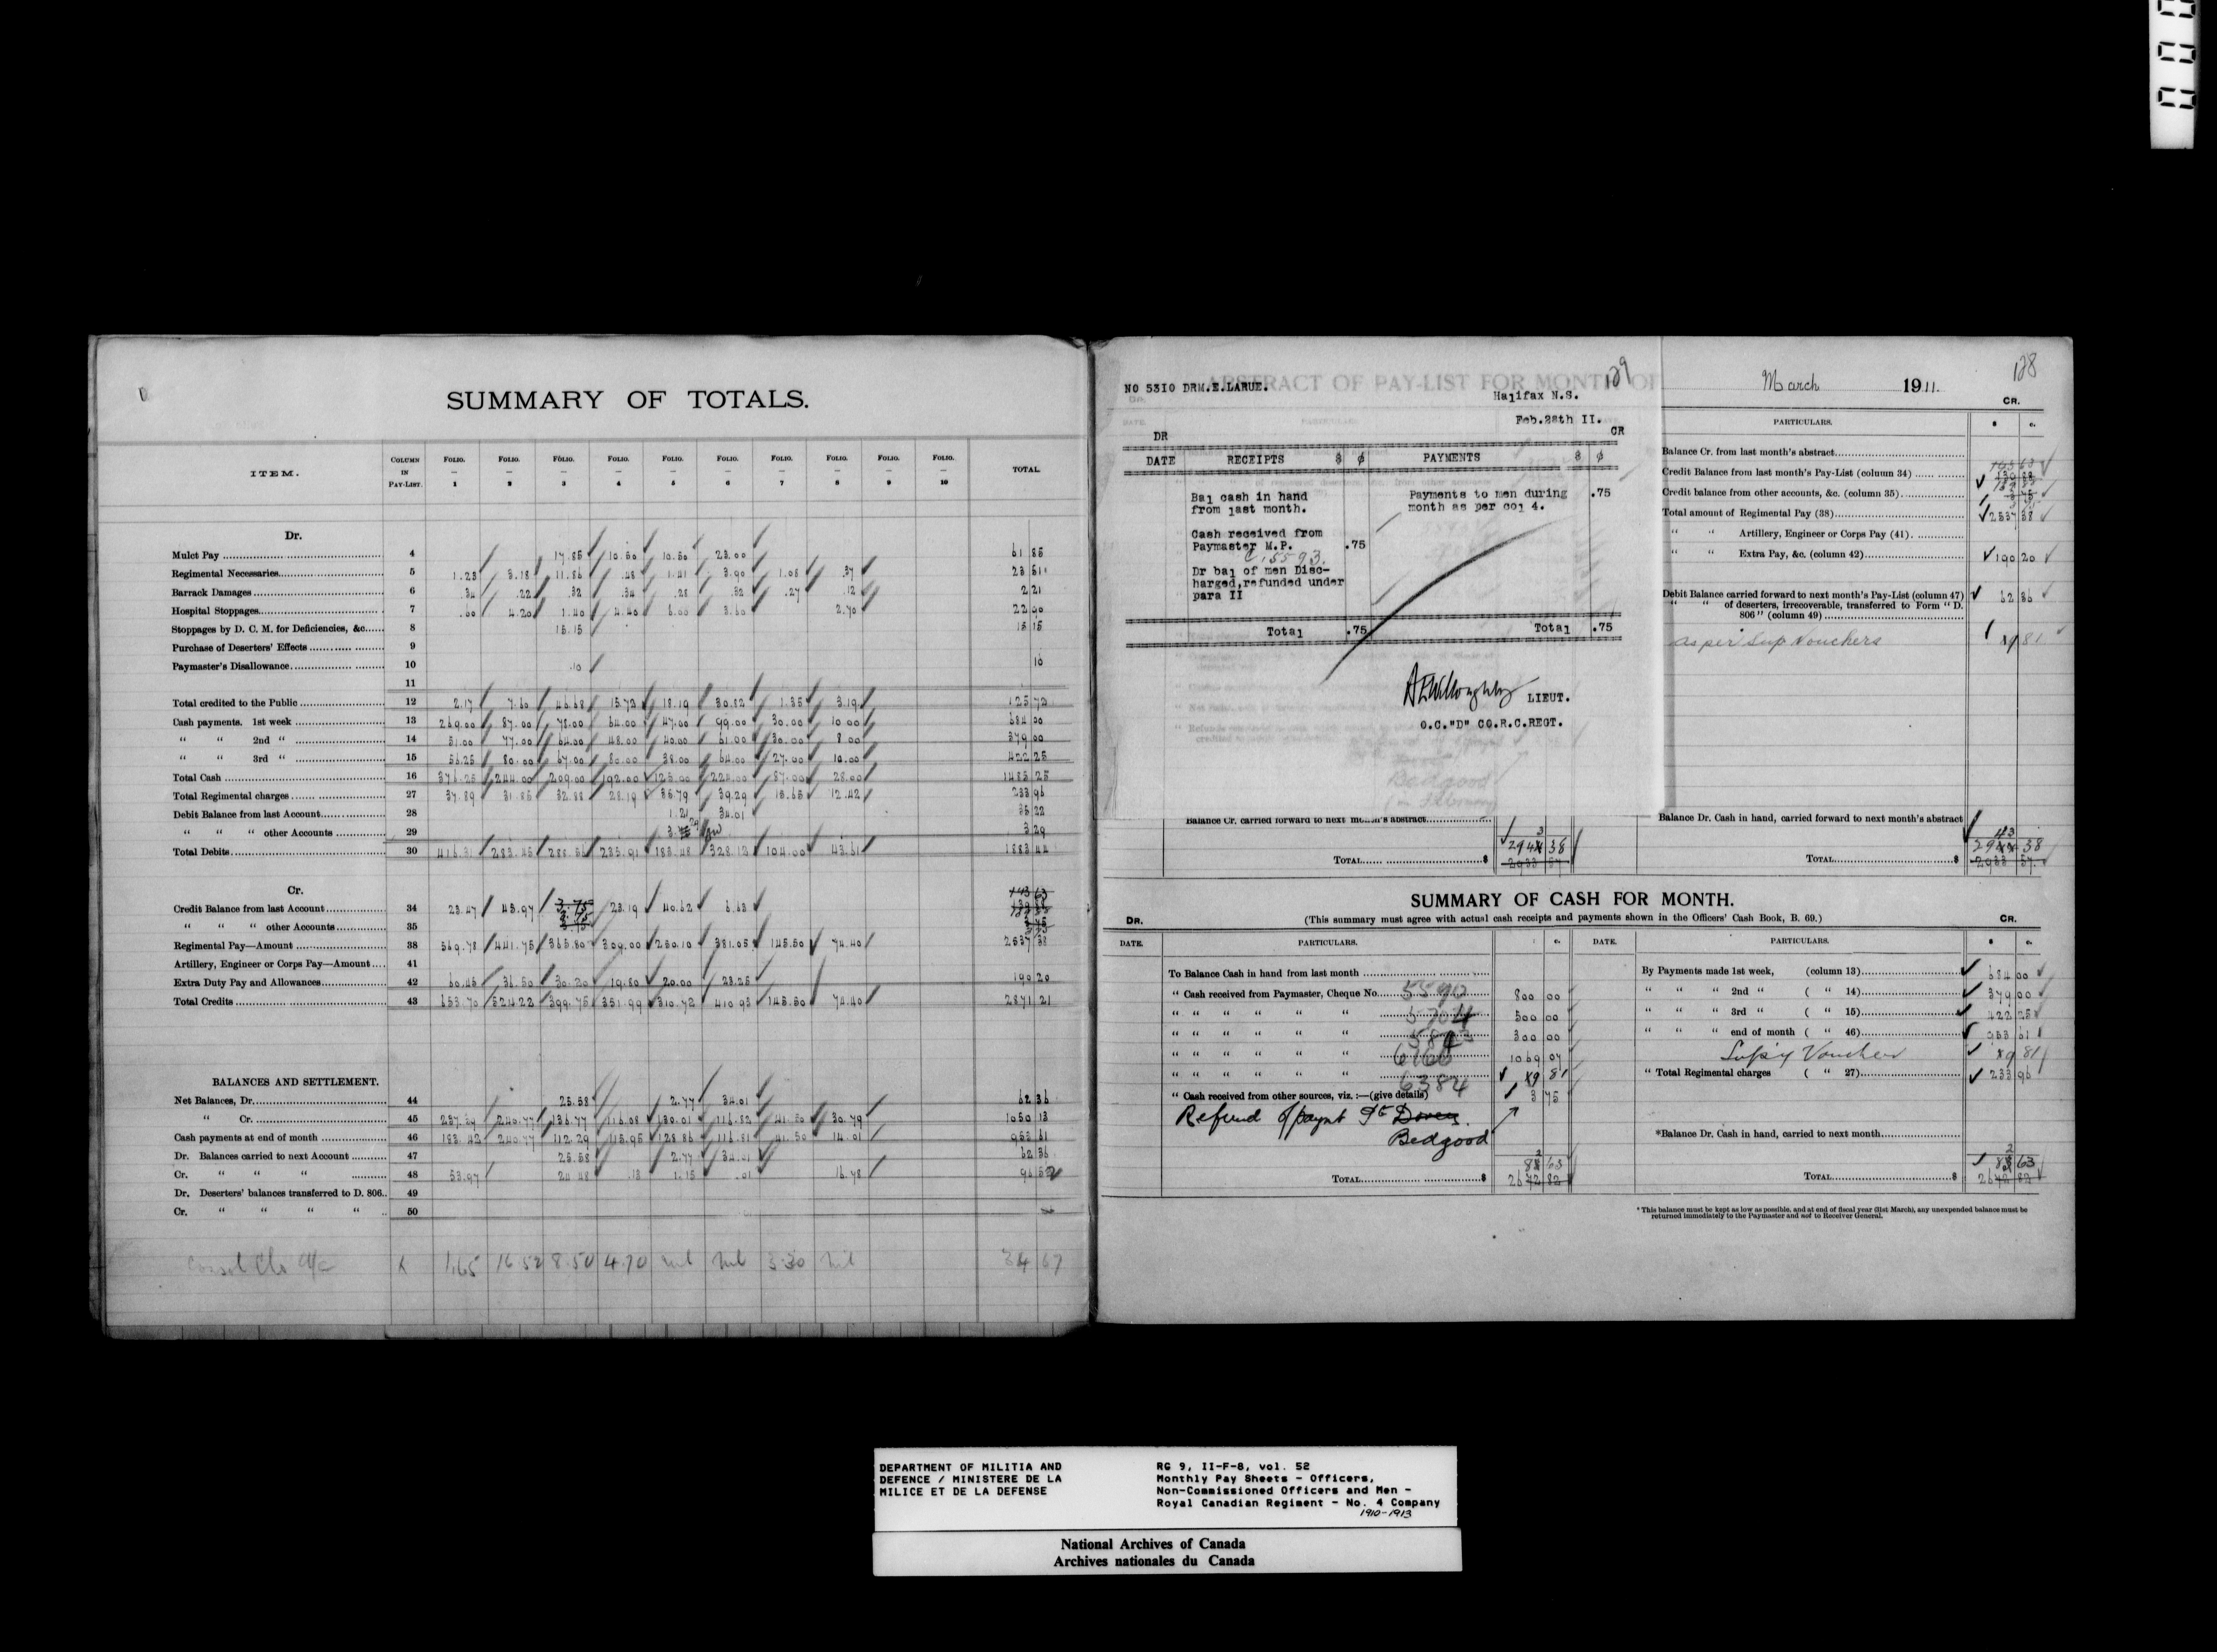 SUMMARY OF TOTALS.
ITEM. COLUMN IN PAY-LIST. FOLIO. — 1 FOLIO. — 2 FOLIO. — 3 FOLIO. — 4 FOLIO. — 5 FOLIO. — 6 FOLIO. — 7 FOLIO. — 8 FOLIO. — 9 FOLIO. — 10 TOTAL
Dr.
Mulct Pay 4 17.85 10.50 10.50 23.00 61 85
Regimental Necessaries 5 1.23 3.18 11.86 .48 1.41 3.90 1.08 .37 23 51
Barrack Damages 6 .34 .22 .32 .34 .28 .32 .27 .12 2 21
Hospital Stoppages 7 .60 4.20 1.40 4.40 6.00 3.60 2.70 22 90
Stoppages by D. C. M. for Deficiencies, &c 8 15.15 15 15
Purchase of Deserters' Effects 9
Paymaster's Disallowance 10 .10 10
11
Total credited to the Public 12 2.17 7.60 46.68 15.72 18.19 30.82 1.35 3.19 125 72
Cash payments. 1st week 13 269.00 87.00 78.00 64.00 47.00 99.00 30.00 10.00 684 00
" " 2nd " 14 51.00 77.00 64.00 48.00 40.00 61.00 30.00 8.00 379 00
" " 3rd " 15 56.25 80.00 67.00 80.00 38.00 64.00 27.00 10.00 422 25
Total Cash 16 376.25 244.00 209.00 192.00 125.00 224.00 87.00 28.00 1485 25
Total Regimental charges 27 37.89 31.85 32.88 28.19 35.79 39.29 15.65 12.42 233 96
Debit Balance from last Account 28 1.21 34.01 35 22
" " " other Accounts 29 3 29
Total Debits 30 416.31 283.45 288.56 235.91 183.48 328.12 104.00 43.61 1883 44
Cr.
Credit Balance from last Account 34 23.47 43.97 23.19 40.62 6.63
" " " other Accounts 35 3.75
Regimental Pay—Amount 38 569.78 441.75 365.80 309.00 250.10 381.05 145.50 74.40 2537 38
Artillery, Engineer or Corps Pay—Amount 41
Extra Duty Pay and Allowances 42 60.45 36.50 30.20 19.80 20.00 23.25 190 20
Total Credits 43 653.70 524.22 399.75 351.99 310.72 410.93 145.50 74.40 2871 21
BALANCES AND SETTLEMENT.
Net Balances, Dr. 44 25.58 2.77 34.01 62 36
" Cr. 45 237.39 240.77 136.77 116.08 130.01 116.82 41.50 30.79 1050 13
Cash payments at end of month 46 183.42 240.77 112.29 115.95 128.86 116.81 41.50 14.01 953 61
Dr. Balances carried to next Account 47 25.58 2.77 34.01 62 36
Cr. " " " 48 53.97 24.48 .13 1.15 .01 16.78 96 52
Dr. Deserters' balances transferred to D. 806 49
Cr. " " " " 50
1.65 16.52 8.50 4.70 nil nil 3.30 nil 34 67
NO 5310 DRM.E.LARUE.
129
Halifax N.S.
Feb.28th II.
DR CR
DATE RECEIPTS $ ¢ PAYMENTS $ ¢
Bal cash in hand from last month.
Payments to men during month as per col 4. .75
Cash received from Paymaster M.P. .75
C. 5593.
Dr bal of men Discharged,refunded under para II
Total .75 Total .75
AEWilloughby LIEUT.
O.C."D" CO.R.C.REGT.
ABSTRACT OF PAY-LIST FOR MONTH OF
March 1911.
128
CR.
PARTICULARS. $ c.
Balance Cr. from last month's abstract
Credit Balance from last month's Pay-List (column 34)
Credit balance from other accounts, &c. (column 35)
Total amount of Regimental Pay (38) 2537 38
" " Artillery, Engineer or Corps Pay (41)
" " Extra Pay, &c. (column 42) 190 20
Debit Balance carried forward to next month's Pay-List (column 47) 62 36
" " of deserters, irrecoverable, transferred to Form "D. 806" (column 49)
as per Sup Vouchers
Balance Cr. carried forward to next month's abstract
Balance Dr. Cash in hand, carried forward to next month's abstract
TOTAL $ 2943 38
TOTAL $
SUMMARY OF CASH FOR MONTH.
DR. (This summary must agree with actual cash receipts and payments shown in the Officers' Cash Book, B. 69.) CR.
DATE. PARTICULARS. c. DATE. PARTICULARS. $ c.
To Balance Cash in hand from last month
" Cash received from Paymaster, Cheque No. 5590 800 00
" " " " " " 5704 500 00
" " " " " " 300 00
" " " " " " 1069 07
" " " " " " 6384
" Cash received from other sources, viz.:—(give details) 3 75
Refund of paymt
Bedgood
TOTAL $
By Payments made 1st week, (column 13) 684 00
" " " 2nd " ( " 14) 379 00
" " " 3rd " ( " 15) 422 25
" " " end of month ( " 46) 953 61
Voucher
" Total Regimental charges ( " 27) 233 96
*Balance Dr. Cash in hand, carried to next month
TOTAL $
* This balance must be kept as low as possible, and at end of fiscal year (31st March), any unexpended balance must be
returned immediately to the Paymaster and not to Receiver General.
DEPARTMENT OF MILITIA AND
DEFENCE / MINISTERE DE LA
MILICE ET DE LA DEFENSE
RG 9, II-F-8, vol. 52
Monthly Pay Sheets - Officers,
Non-Commissioned Officers and Men -
Royal Canadian Regiment - No. 4 Company
1910-1913
National Archives of Canada
Archives nationales du Canada